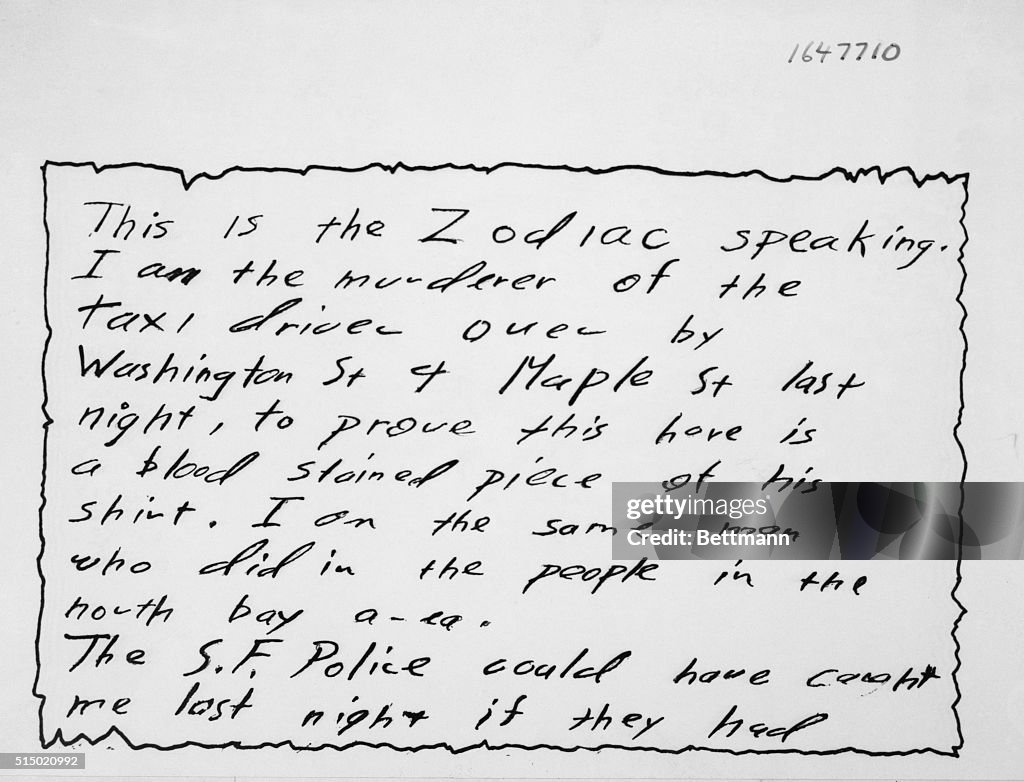 1647710
This is the Zodiac speaking.
I am the murderer of the
taxi driver over by
Washington St & Maple St last
night, to prove this here is
a blood stained piece of his
shirt. I am the same man
who did in the people in the
north bay area.
The S.F. Police could have caught
me last night if they had
gettyimages®
Bettmann
515020992